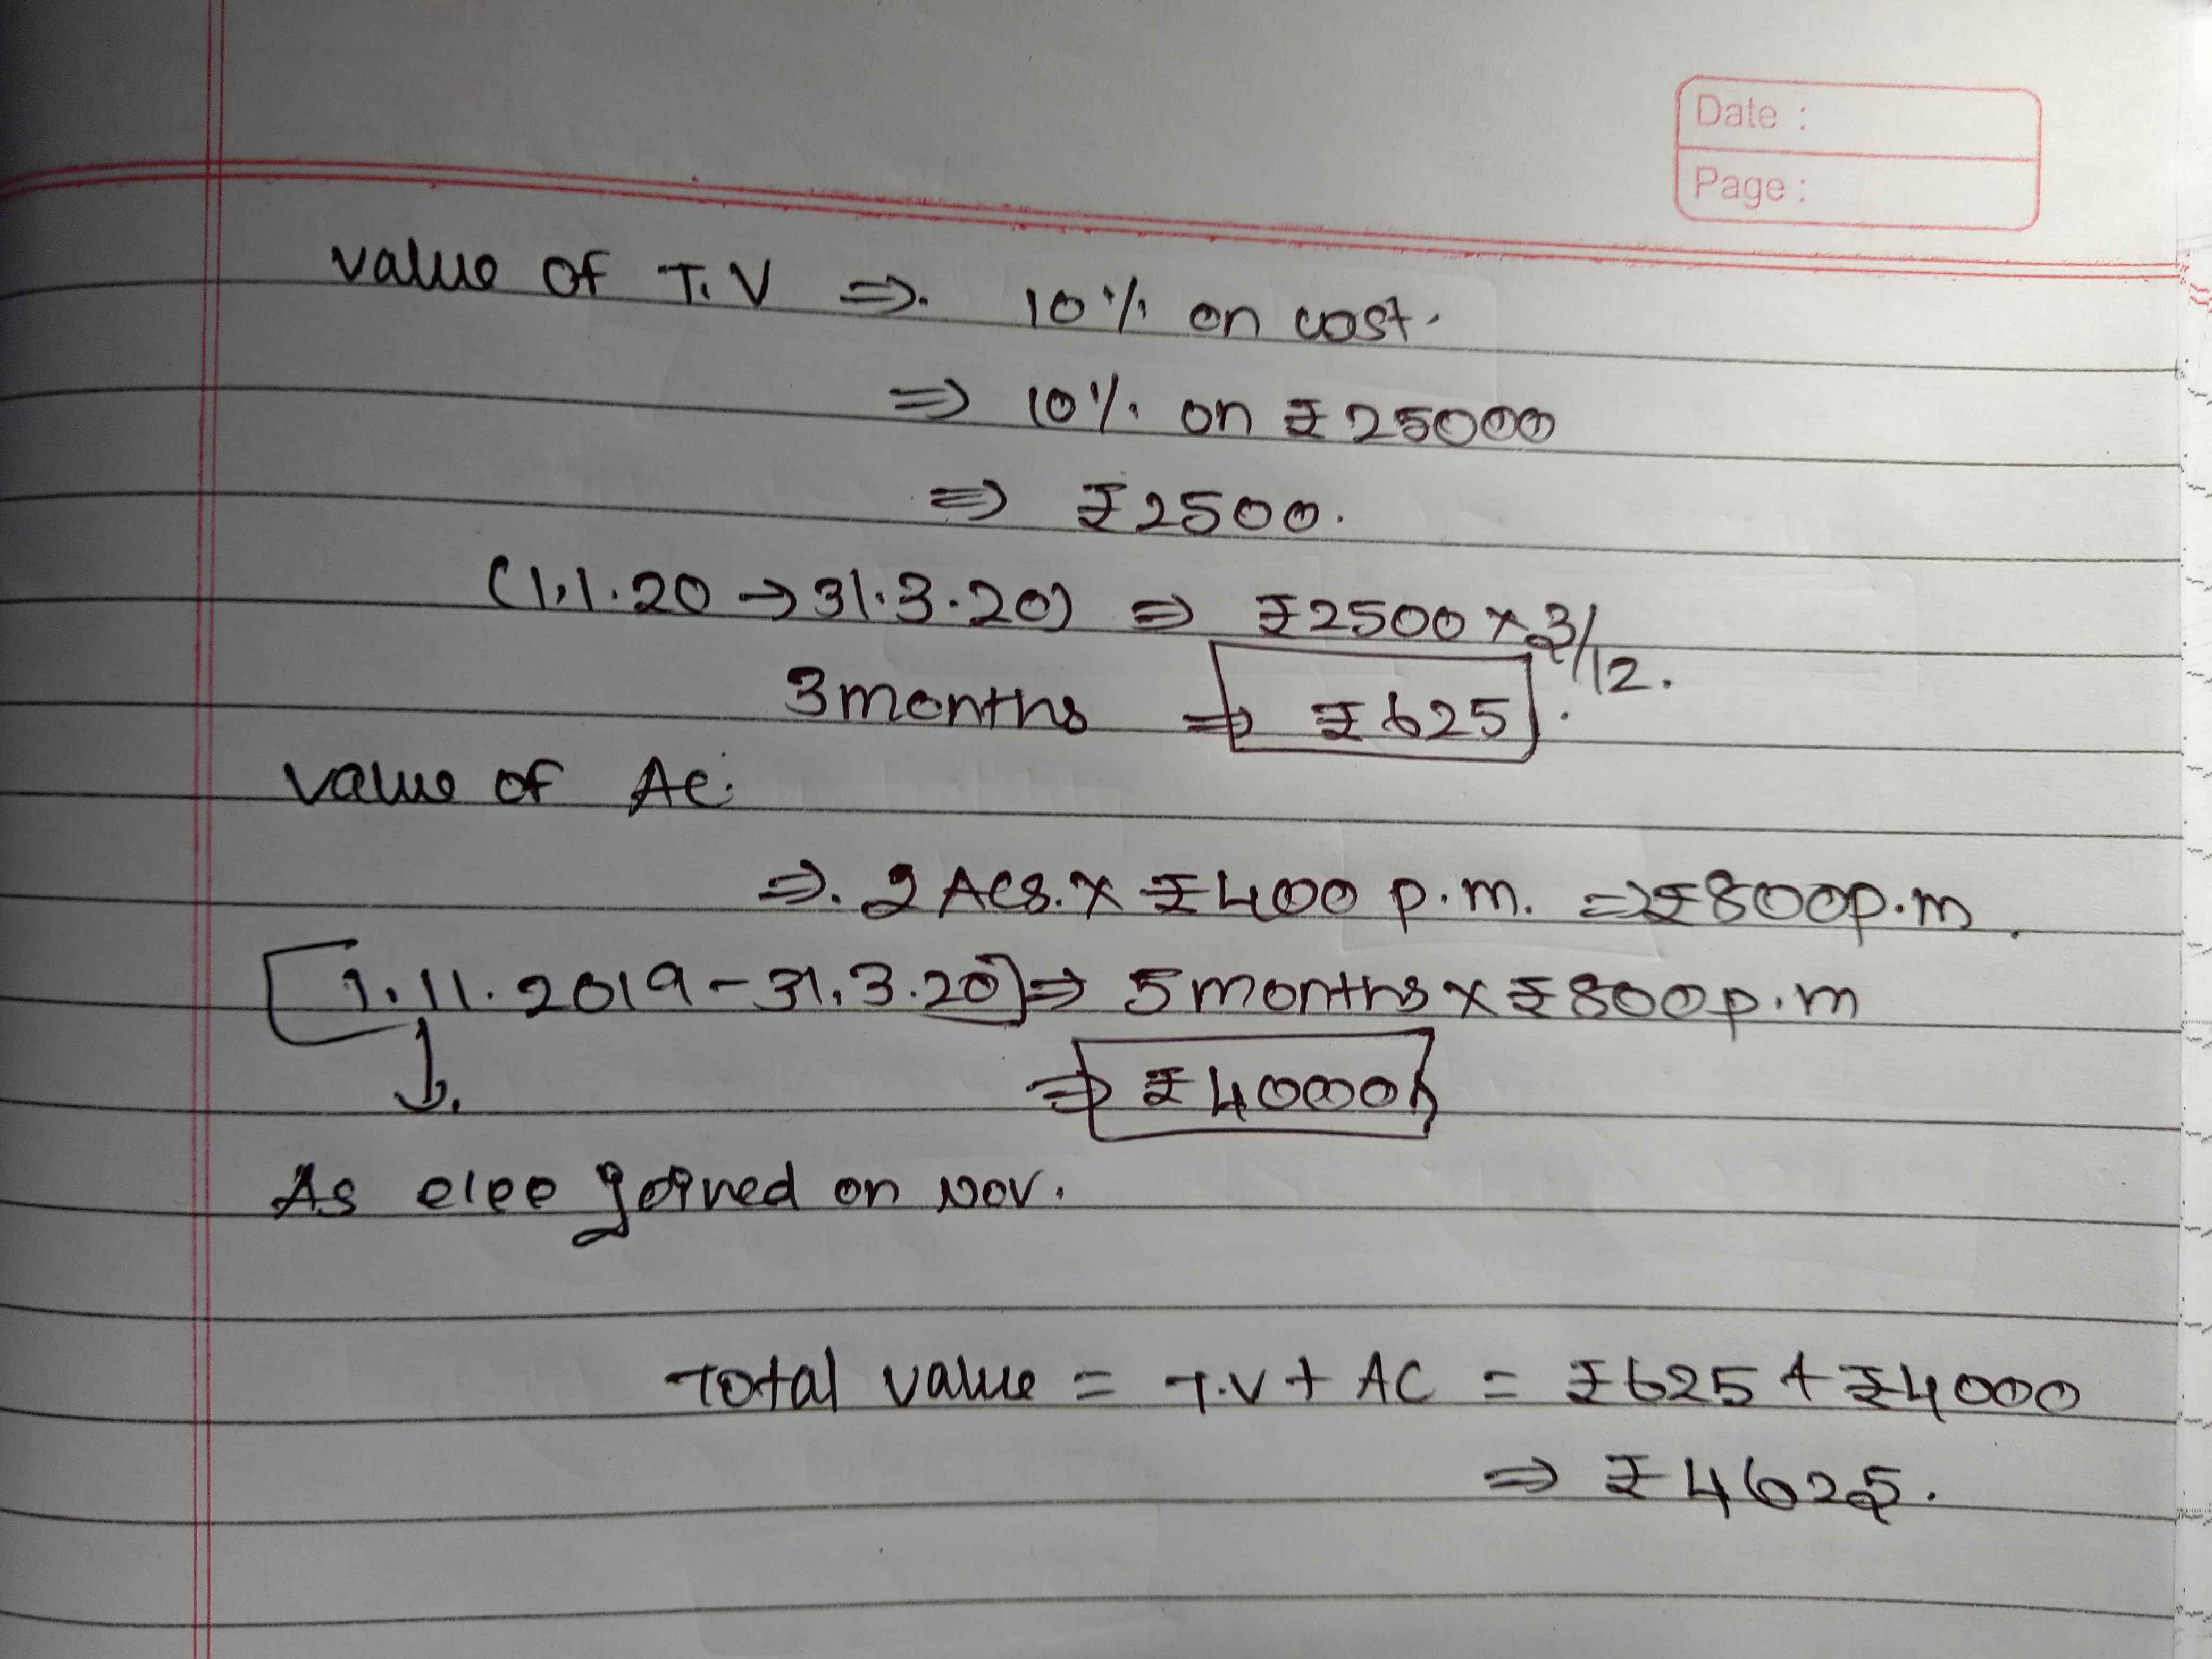 Date :
Page :
value of T.V ⇒. 10% on cost.
⇒ 10% on ₹25000
⇒ ₹2500.
(1.1.20 → 31.3.20) ⇒ ₹2500 × 3/12.
3 months ⇒ ₹625.
value of AC.
⇒. 2 ACs. × ₹400 p.m. ⇒ ₹800p.m.
[1.11.2019 - 31.3.20] ⇒ 5 months × ₹800p.m
⇒ ₹4000
As elee joined on Nov.
Total value = T.V + AC = ₹625 + ₹4000
⇒ ₹4625.